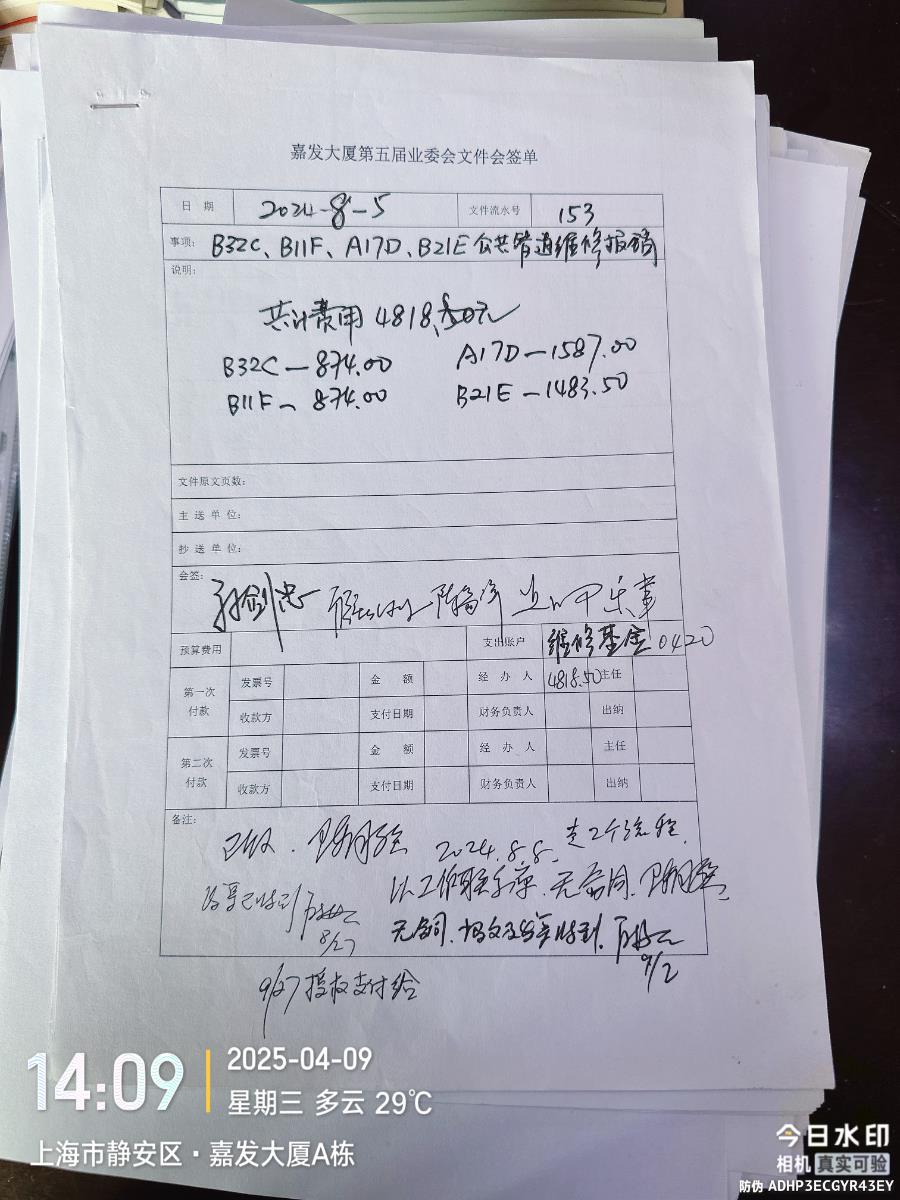 嘉发大厦第五届业委会文件会签单
日 期 2024-8-5 文件流水号 153
事项: B32C、B11F、A17D、B21E公共管道维修报销
说明:
共计费用 4818.50元
B32C — 874.00 A17D — 1587.00
B11F — 874.00 B21E — 1483.50
文件原文页数:
主 送 单 位:
抄 送 单 位:
会签:
预算费用 支出账户 维修基金 0420
第一次付款 发票号 金 额 经 办 人 4818.50 主任
收款方 支付日期 财务负责人 出纳
第二次付款 发票号 金 额 经 办 人 主任
收款方 支付日期 财务负责人 出纳
备注:
2024.8.8. 走2个流程.
以工作联系单. 无合同.
8/27
无合同.
9/2
9/27 授权支付给
14:09
2025-04-09
星期三 多云 29℃
上海市静安区·嘉发大厦A栋
今日水印
相机 真实可验
防伪 ADHP3ECGYR43EY